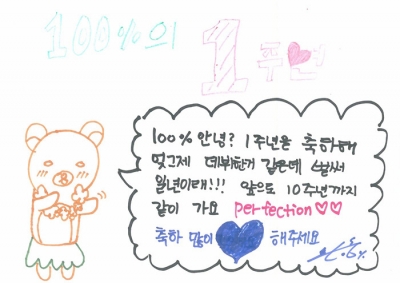 100%의
1주년
100% 안녕? 1주년을 축하해
엊그제 데뷔한거 같은데 벌써
일년이래!!! 앞으로 10주년까지
같이 가요 perfection♡♡
축하 많이 해주세요